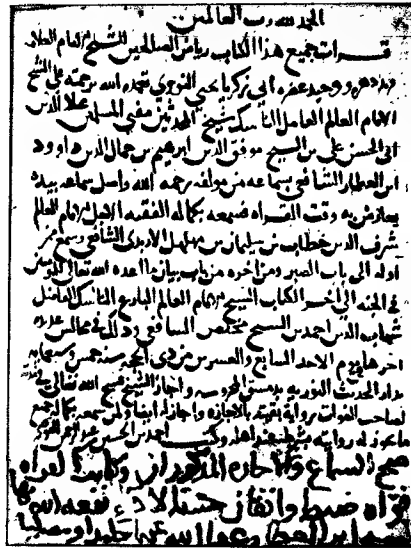 الحمد لله رب العالمين
قرات جميع هذا الكتاب رياض الصالحين للشيخ الامام العلامة
وحيد عصره ابي زكريا يحيى النووي تغمده الله برحمته على الشيخ
الامام العالم العامل الناسك شيخ المحدثين مفتي المسلمين علا الدين
ابي الحسن علي بن الشيخ موفق الدين ابرهيم بن جمال الدين داوود
ابن العطار الشافعي بسماعه من مولفه رحمه الله واصل سماعه بيده
يعارض به وقت القراه فسمعه بكماله الفقيه الامام العالم
شرف الدين خطاب بن سليمان بن مهلهل الاربدي الشافعي وسمع من
اوله الى باب الصبر ومن اخره من باب بيان ما اعده الله تعالى للمومنين
في الجنه الى اخر الكتاب الشيخ الامام العالم البارع الناسك الفاضل
شهاب الدين احمد بن الشيخ الشافعي وذلك في مجالس
اخرها يوم الاحد السابع والعشرين من ذي الحجه سنه خمس
بدار الحديث النوريه بدمشق المحروسه واجاز الشيخ فسح الله تعالى في
لصاحب الفوات روايه بقيته بالاجازه واجاز له ايضا ولمن سمعه بكماله جميع
ما يجوز له روايته بشرطه عند اهله وكتب احمد بن الحسين
صح السماع والاجازه المذكوران وكاتبها قراه
قراه ضبط واتقان حسنة الاداء نفعه الله بها